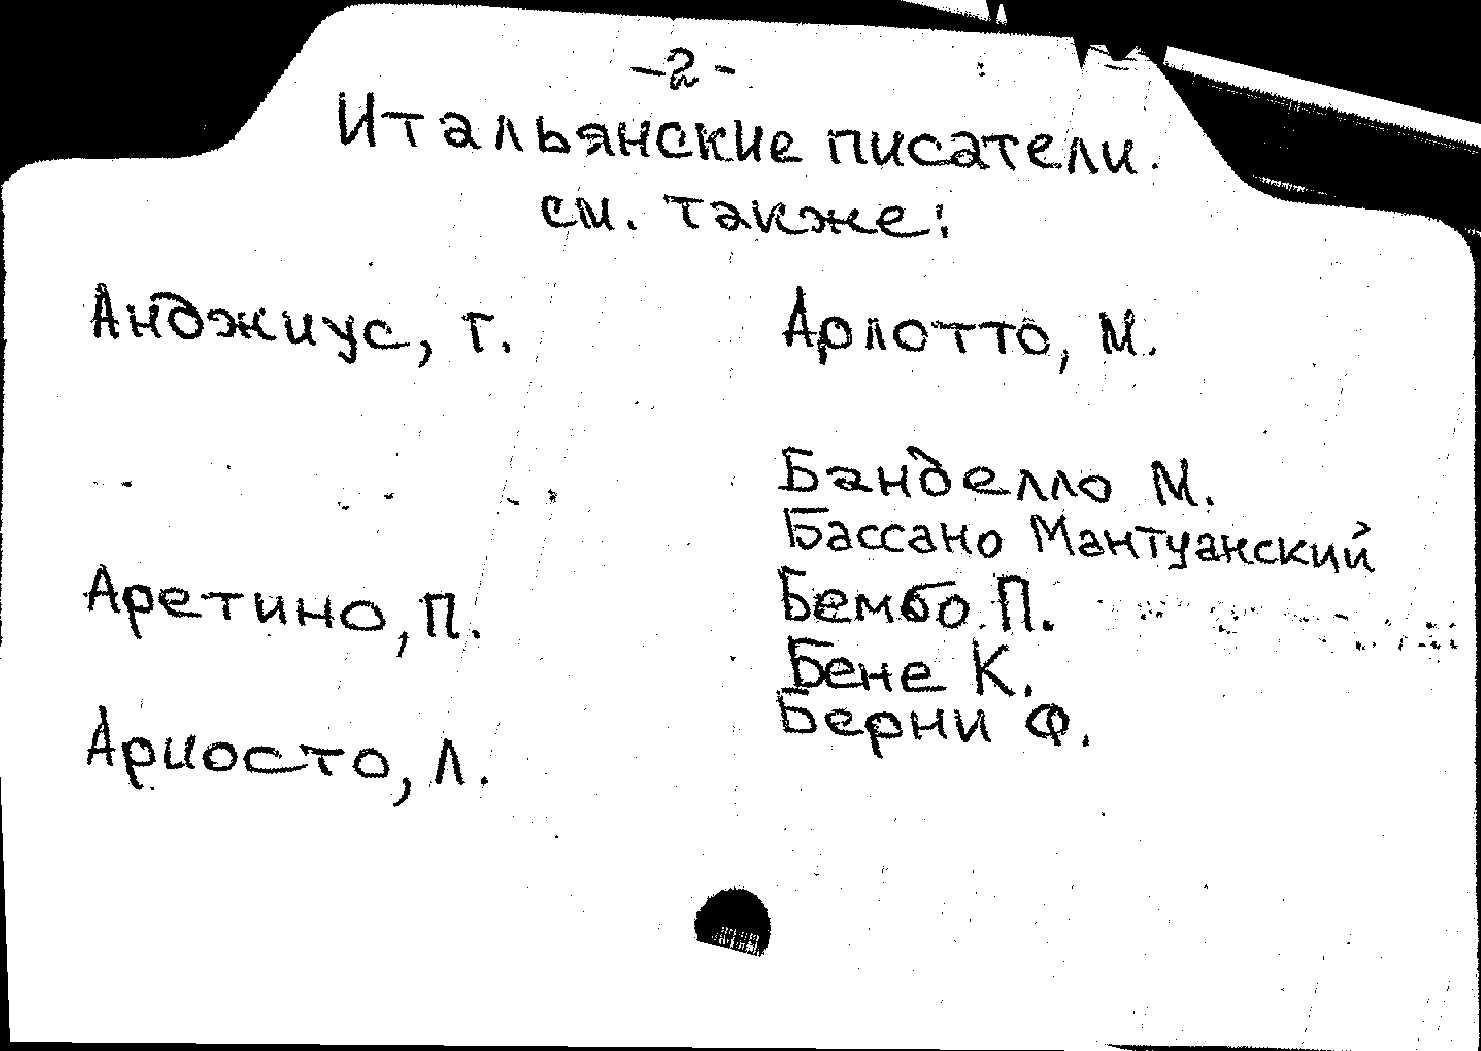 -2-
Итальянские писатели.
см. также:
Анджиус, Г.
Аретино, П.
Ариосто, Л.
Арлотто, М.
Банделло М.
Бассано Мантуанский
Бембо П.
Бене К.
Берни Ф.